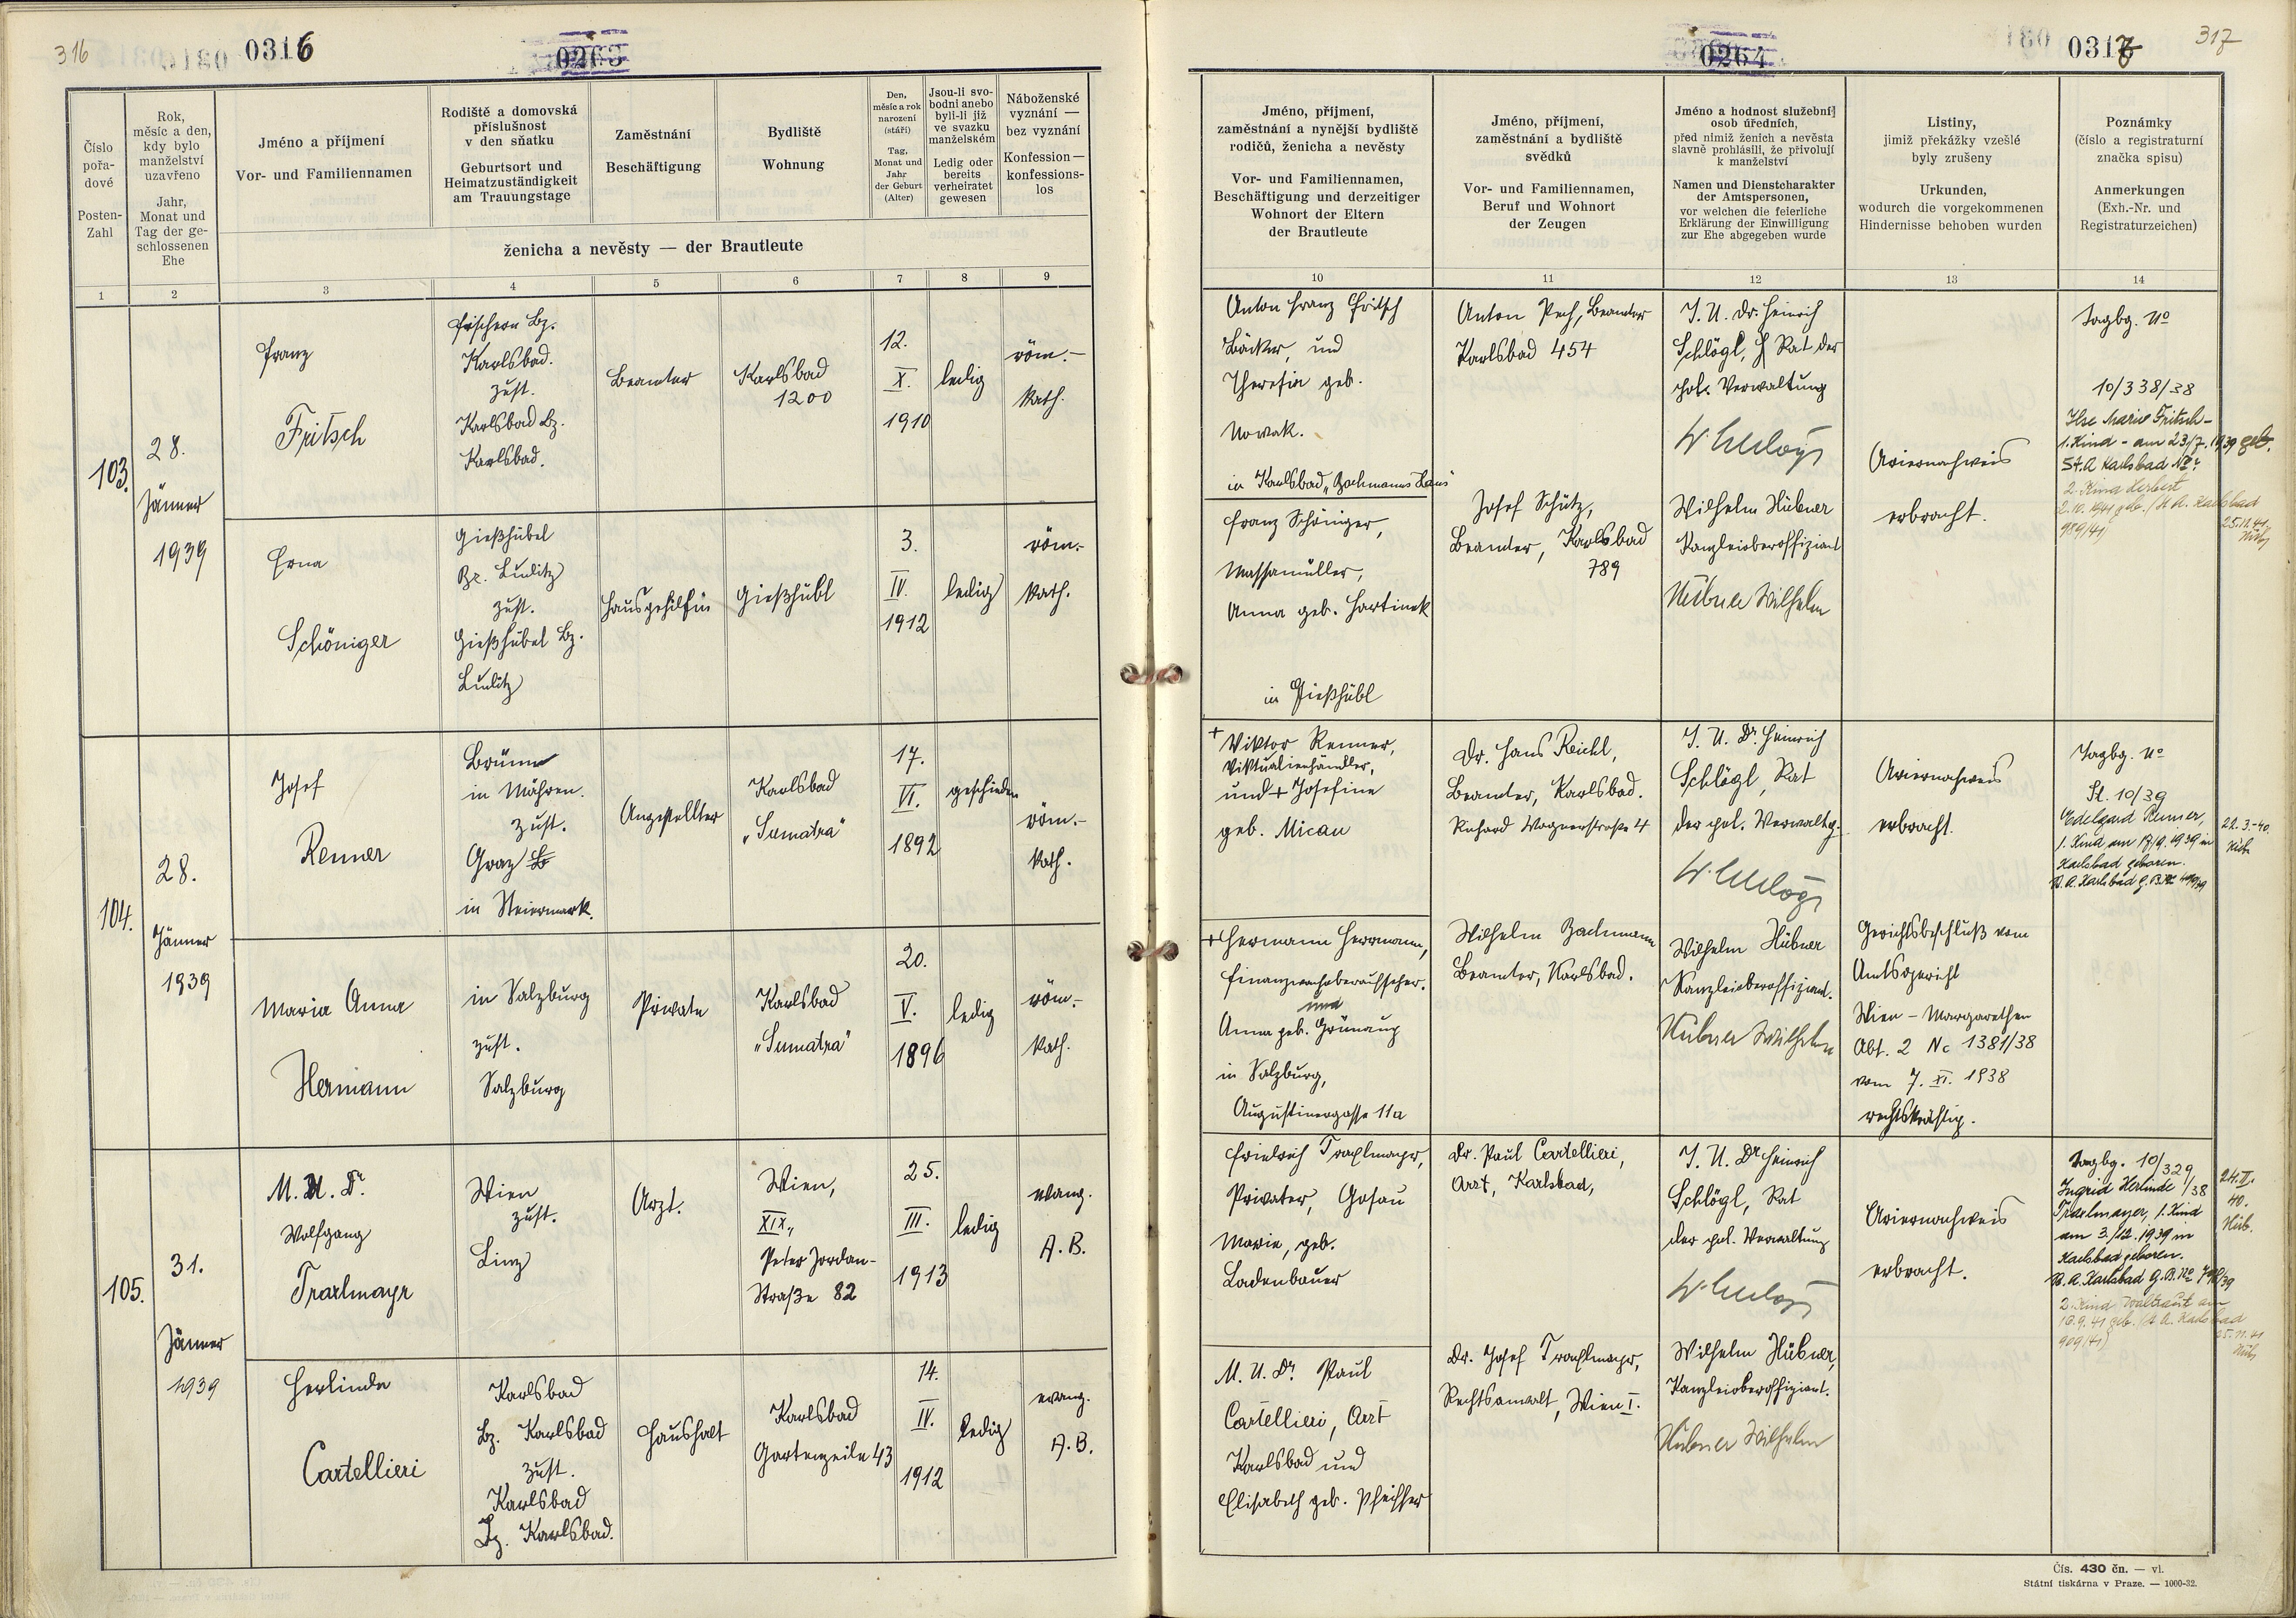 316
0316
0263
Číslo pořa-dové
Posten-Zahl
Rok, měsíc a den, kdy bylo manželství uzavřeno
Jahr, Monat und Tag der ge-schlossenen Ehe
Jméno a příjmení
Vor- und Familiennamen
Rodiště a domovská příslušnost v den sňatku
Geburtsort und Heimatzuständigkeit am Trauungstage
Zaměstnání
Beschäftigung
Bydliště
Wohnung
Den, měsíc a rok narození (stáří)
Tag, Monat und Jahr der Geburt (Alter)
Jsou-li svo-bodni anebo byli-li již ve svazku manželském
Ledig oder bereits verheiratet gewesen
Náboženské vyznání — bez vyznání
Konfession — konfessions-los
ženicha a nevěsty — der Brautleute
1 2 3 4 5 6 7 8 9
103.
28.
Jänner
1939
Franz
Fritsch
Fischern Bz.
Karlsbad.
zust.
Karlsbad Bz.
Karlsbad.
Beamter
Karlsbad
1200
12.
X.
1910
ledig
röm.-
kath.
Erna
Schöniger
Gießhübel
Bz. Luditz
zust.
Gießhübel Bz.
Luditz
Hausgehilfin
Gießhübl
3.
IV.
1912
ledig
röm.-
kath.
104.
28.
Jänner
1939
Josef
Renner
Brünn
in Mähren.
zust.
Graz
in Steiermark.
Angestellter
Karlsbad
„Sumatra"
17.
VI.
1892
geschieden
röm.-
kath.
Maria Anna
Hermann
in Salzburg
zust.
Salzburg
Private
Karlsbad
„Sumatra"
20.
V.
1896
ledig
röm.-
kath.
105.
31.
Jänner
1939
M. U. Dr.
Wolfgang
Traxlmayr
Wien
zust.
Linz
Arzt.
Wien,
XIX.,
Peter Jordan-
Straße 82
25.
III.
1913
ledig
evang.
A. B.
Herlinde
Cartellieri
Karlsbad
Bz. Karlsbad
zust.
Karlsbad
Bz. Karlsbad.
Haushalt
Karlsbad
Gartenzeile 43
14.
IV.
1912
ledig
evang.
A. B.
0264
0317
317
Jméno, příjmení, zaměstnání a nynější bydliště rodičů, ženicha a nevěsty
Vor- und Familiennamen, Beschäftigung und derzeitiger Wohnort der Eltern der Brautleute
Jméno, příjmení, zaměstnání a bydliště svědků
Vor- und Familiennamen, Beruf und Wohnort der Zeugen
Jméno a hodnost služební osob úředních, před nimiž ženich a nevěsta slavně prohlásili, že přivolují k manželství
Namen und Dienstcharakter der Amtspersonen, vor welchen die feierliche Erklärung der Einwilligung zur Ehe abgegeben wurde
Listiny, jimiž překážky vzešlé byly zrušeny
Urkunden, wodurch die vorgekommenen Hindernisse behoben wurden
Poznámky (číslo a registraturní značka spisu)
Anmerkungen (Exh.-Nr. und Registraturzeichen)
10 11 12 13 14
Anton Franz Fritsch
Bäcker, und
Theresia geb.
Nowak.
in Karlsbad „Bachmanns Haus"
Anton Pech, Beamter
Karlsbad 454
J. U. Dr. Heinrich
Schlögl, Rat der
pol. Verwaltung
Ariernachweis
erbracht.
Tagbg. No
10/338/38
Ilse Marie Fritsch -
1. Kind - am 23/7. 1939 geb.
St. A Karlsbad
2. Kind Herbert
2.10.1941 geb. (St. A. Karlsbad
989/41)
25.11.41
Hüb
Franz Schöniger,
Anna geb. Hartinek
in Gießhübl
Josef Schütz,
Beamter, Karlsbad
789
Wilhelm Hübner
Kanzleioberoffiziant
Hübner Wilhelm
+ Viktor Renner,
Viktualienhändler,
und + Josefine
geb. Micau
Dr. Hans Reichl,
Beamter, Karlsbad.
Richard Wagnerstraße 4
J. U. Dr. Heinrich
Schlögl, Rat
der pol. Verwaltg.
Ariernachweis
erbracht.
Tagbg. No
St. 10/39
Edelgard Renner,
1. Kind am 17/9. 1939 in
Karlsbad geboren.
22.3.-40.
Hüb.
+ Hermann Herrmann,
Finanzwachoberaufseher.
und
Anna geb. Grünaug
in Salzburg,
Augustinergasse 11a
Wilhelm Bachmann
Beamter, Karlsbad.
Wilhelm Hübner
Kanzleioberoffiziant.
Hübner Wilhelm
Gerichtsbeschluß vom
Amtsgericht
Wien - Margarethen
Abt. 2 Nc 1381/38
vom 7. XI. 1938
rechtskräftig.
Friedrich Traxlmayr,
Privater, Gosau
Marie, geb.
Ladenbauer
Dr. Paul Cartellieri,
Arzt, Karlsbad,
J. U. Dr Heinrich
Schlögl, Rat
der pol. Verwaltung
Ariernachweis
erbracht.
Tagbg. 10/329/38
Ingrid Herlinde
Traxlmayer, 1. Kind
am 3./12. 1939 in
Karlsbad geboren.
24.II.
40.
Hüb.
2. Kind Waltraut am
19.9.41 geb. (St. A. Karlsbad
909/41)
25.11.41
Hüb
M. U. Dr. Paul
Cartellieri, Arzt
Karlsbad und
Elisabeth geb. Pfeiffer
Dr. Josef Traxlmayr,
Rechtsanwalt, Wien I.
Wilhelm Hübner,
Kanzleioberoffiziant.
Hübner Wilhelm
Čís. 430 čn. — vl.
Státní tiskárna v Praze. — 1000-32.